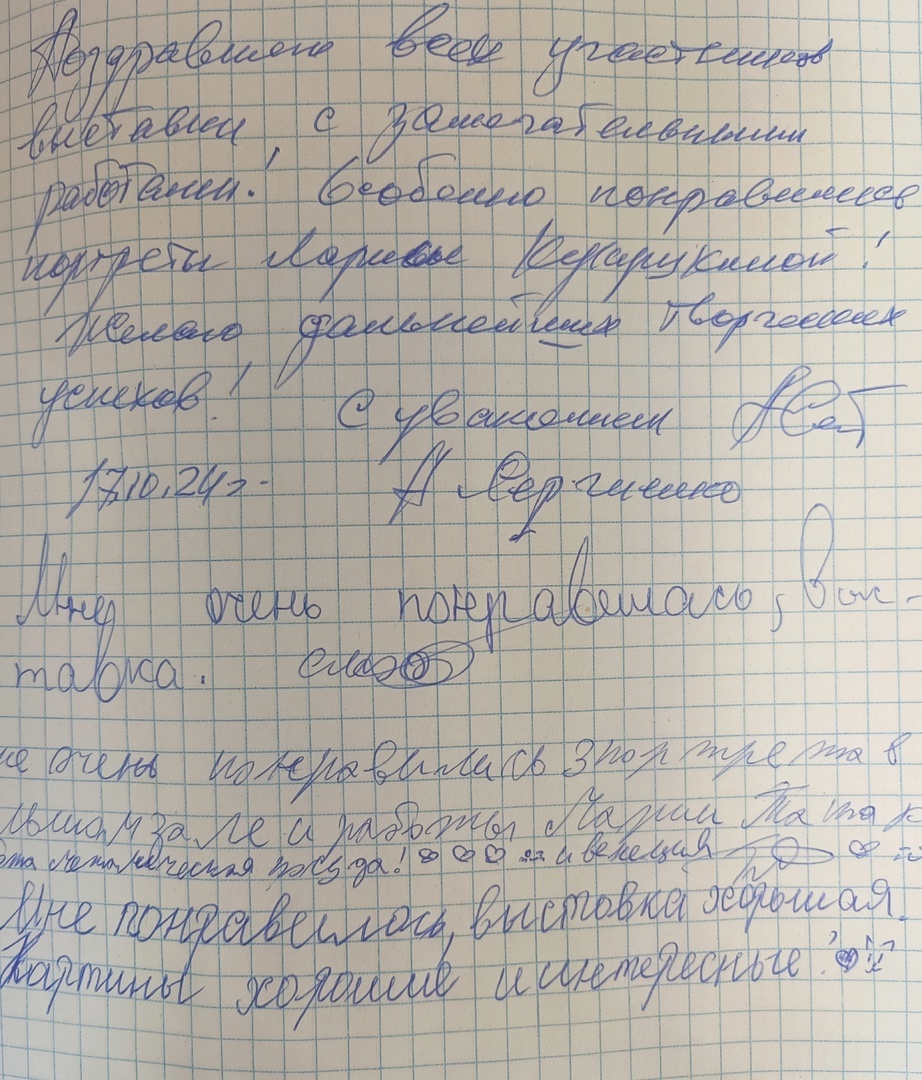 Поздравляю всех участников
выставки с замечательными
работами! Особенно понравились
портреты Ларисы
Желаю дальнейших творческих
успехов! С уважением
17.10.24г. А
Мне очень понравилась, выс-
тавка.
не очень понравились 3 портрета в
льшом зале и работы Марии
эта металическая посуда! и венеция
Мне понравелась, выстовка хорошая.
Картины хорошие и интересные!